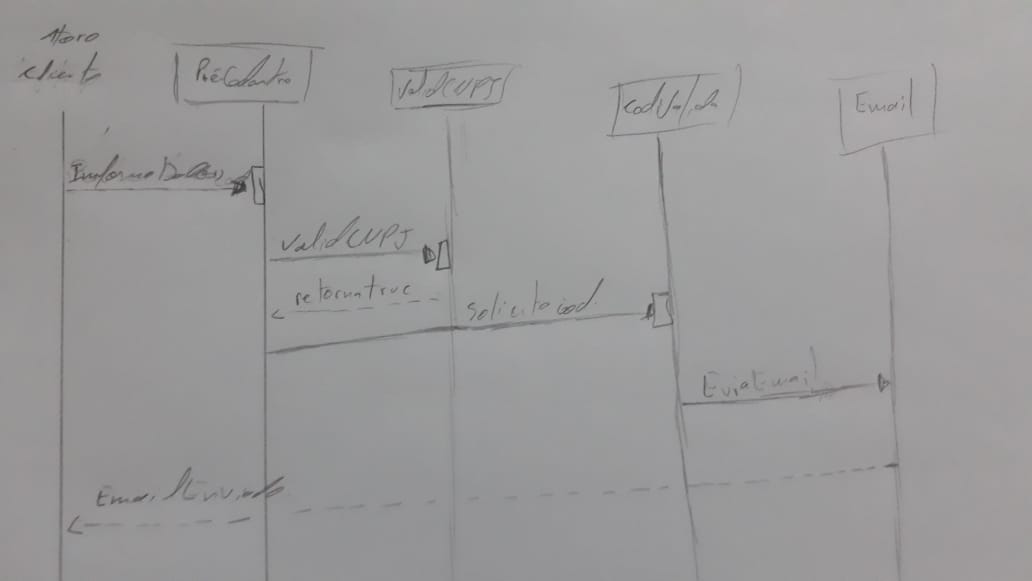 Ator
cliente
PréCadastro
ValidCNPJ
CodValida
Email
InformaDados
ValidCNPJ
retorna true
Solicita cod.
EviaEmail
Email Enviado